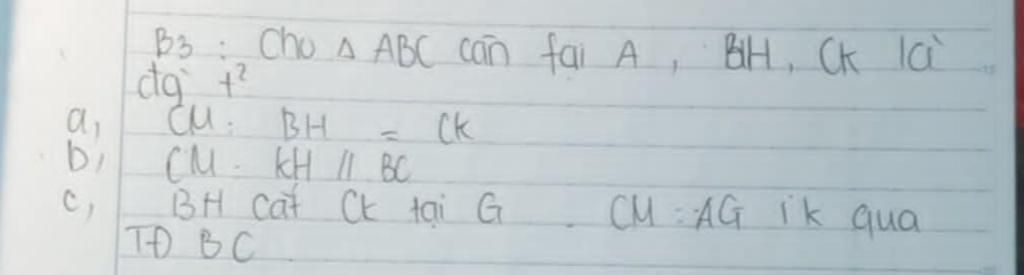 B3 : Cho Δ ABC cân tại A , BH, CK là
đg t²
a, CM: BH = CK
b, CM: KH // BC
c, BH cắt CK tại G . CM : AG qua
TĐ BC